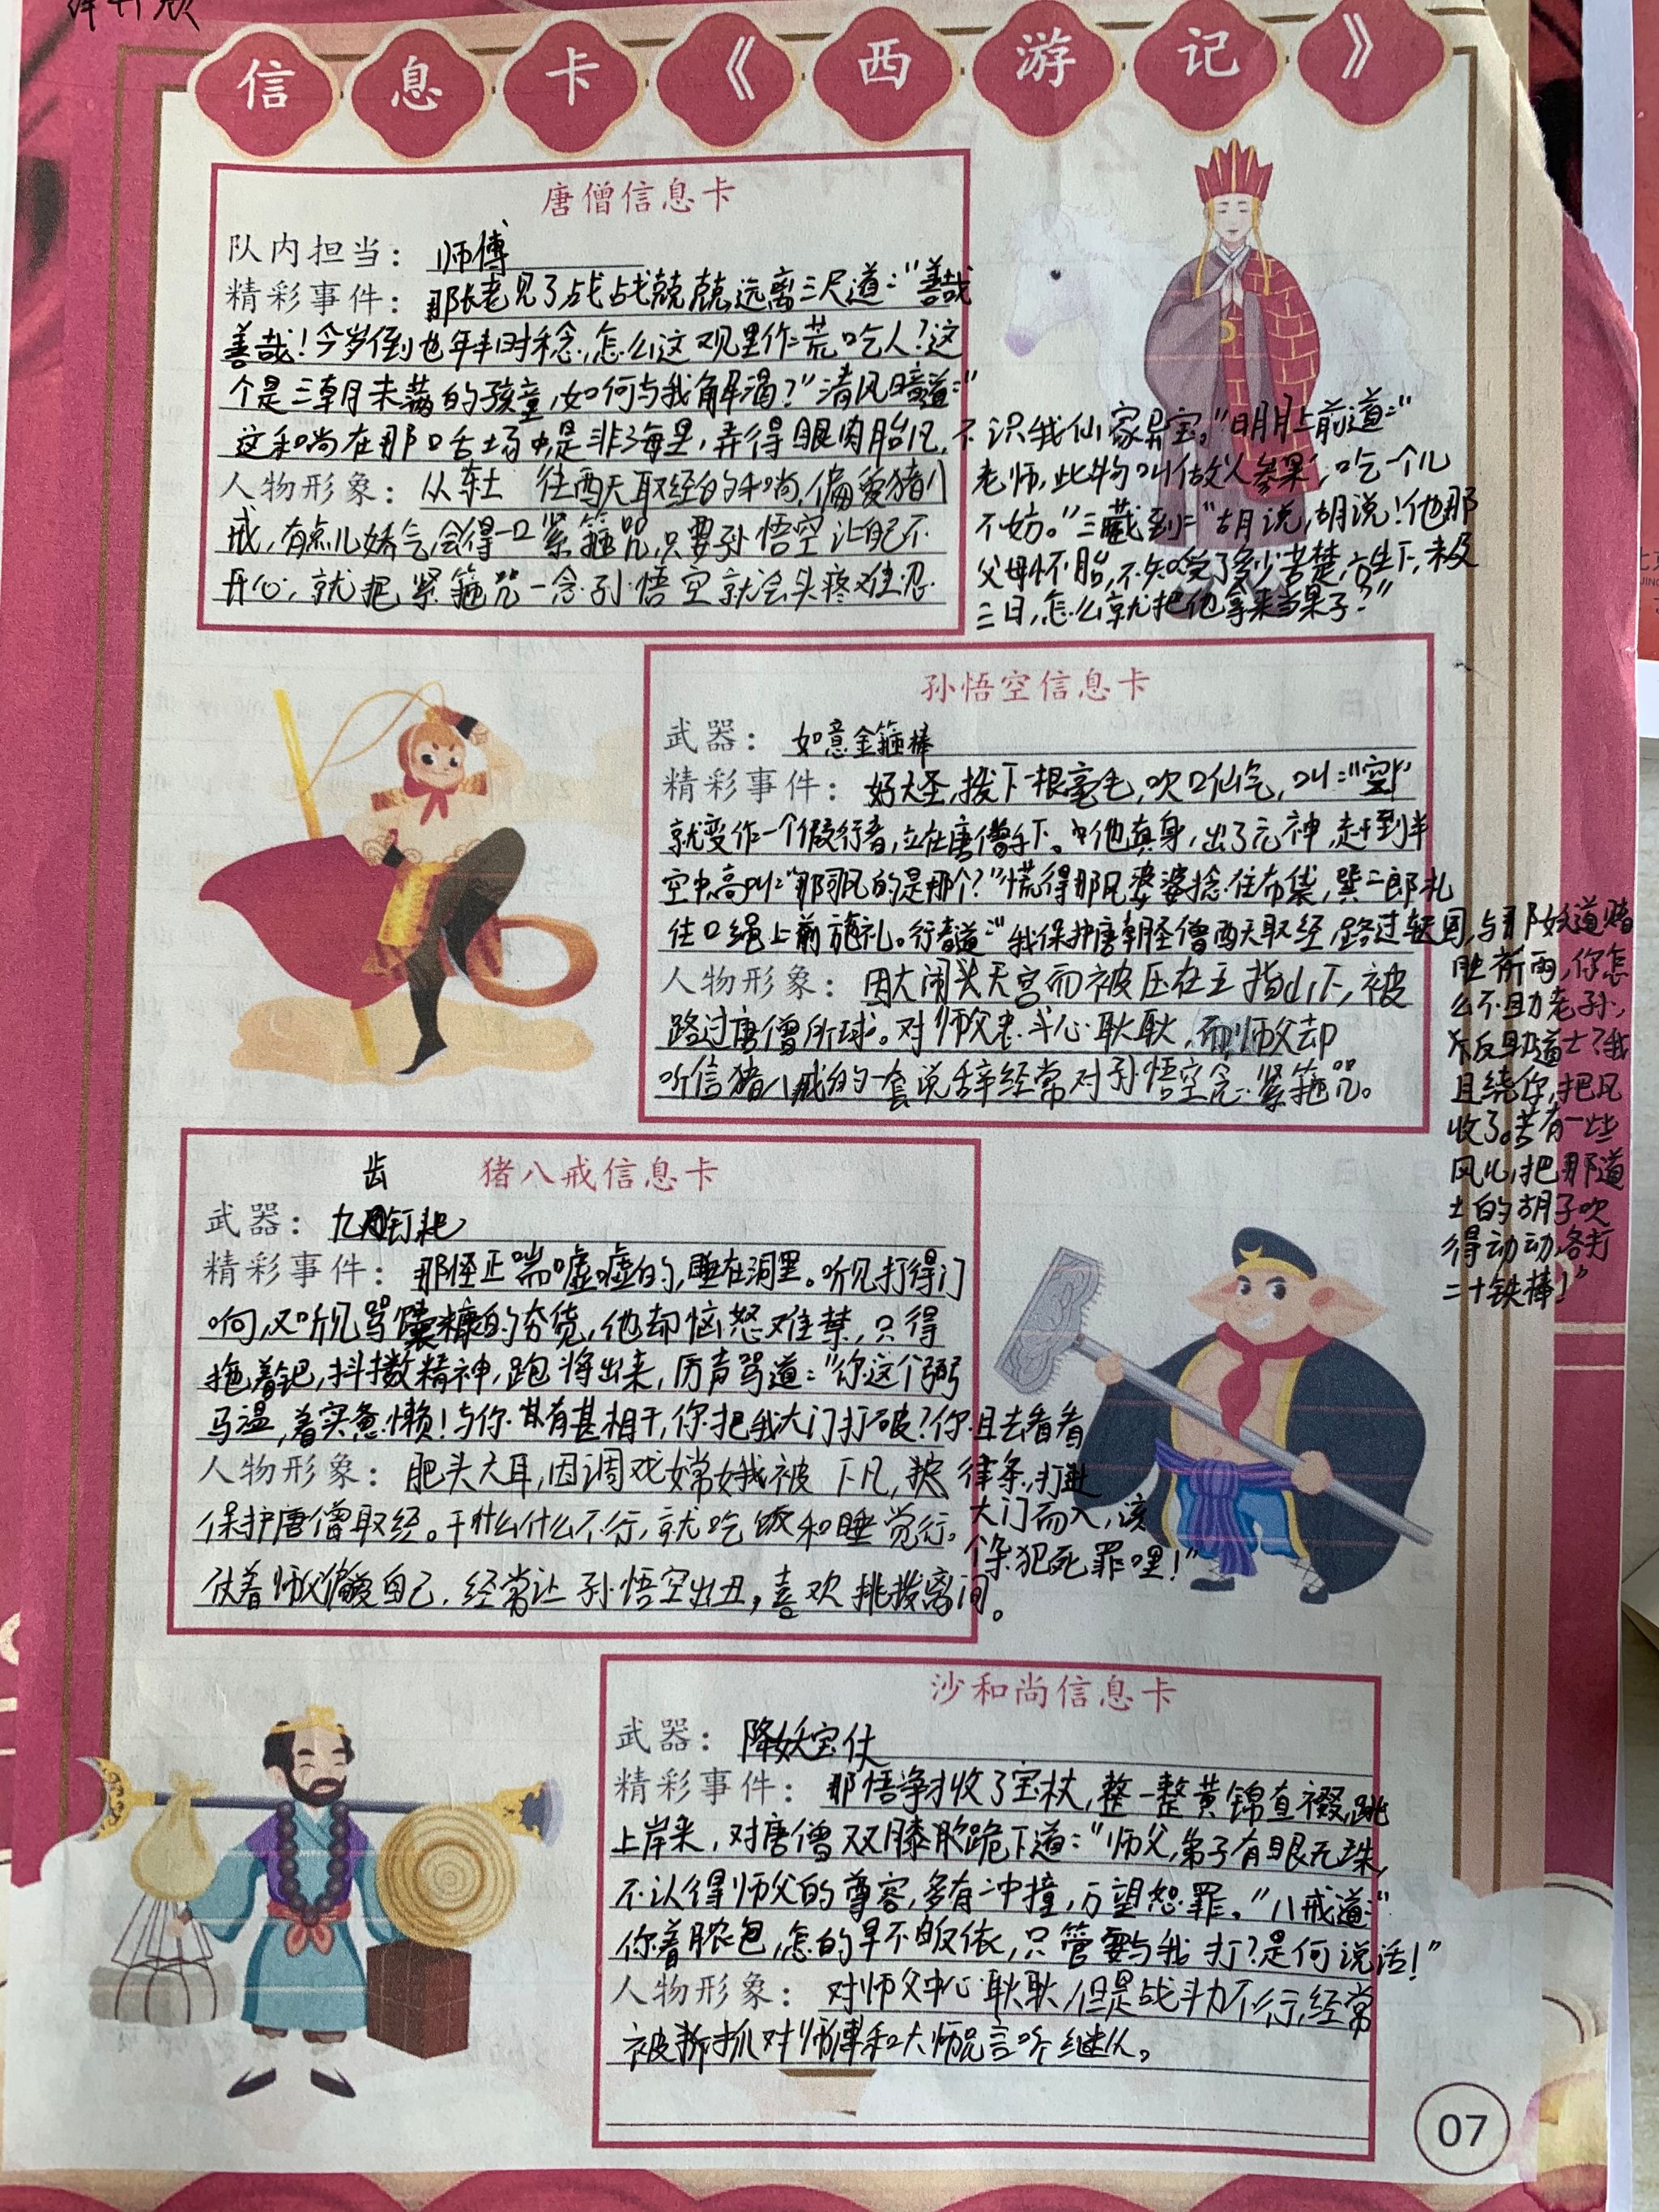 信息卡《西游记》
唐僧信息卡
队内担当：师傅
精彩事件：那长老见了战战兢兢远离三尺道："善哉
善哉！今岁倒也年丰时稔，怎么这观里作荒吃人？这
个是三朝未满的孩童，如何与我解渴？"清风暗道："
这和尚在那口舌场中，是非海里，弄得眼肉胎凡，不识我仙家异宝。"明月上前道："
老师，此物叫做'人参果'，吃一个儿
不妨。"三藏到："胡说，胡说！他那
父母怀胎，不知受了多少苦楚，方生下，未及
三日，怎么就把他拿来当果子？"
人物形象：从东土 往西天取经的和尚，偏爱猪八
戒，有点儿娇气，会得一口紧箍咒，只要孙悟空让自己不
开心，就把紧箍咒一念，孙悟空就会头疼难忍
孙悟空信息卡
武器：如意金箍棒
精彩事件：好大圣，拔下一根毫毛，吹口仙气，叫："变！"
就变作一个假行者，立在唐僧手下。他真身，出了元神，赶到半
空中，高叫："那司风的是那个？"慌得那风婆婆捻住布袋，巽二郎札
住口绳上前施礼。行者道："我保护唐朝圣僧西天取经，路过车迟国，与那妖道赌
胜祈雨，你怎
么不助老孙，
反助道士？我
且绕你，把风
收了。若有一些
风儿，把那道
士的胡子吹
得动动，各打
二十铁棒！"
人物形象：因大闹天宫而被压在五指山下，被
路过唐僧所救。对师父忠心耿耿，而师父却
听信猪八戒的一套说辞经常对孙悟空念紧箍咒。
猪八戒信息卡
齿
武器：九钉耙
精彩事件：那怪正喘嘘嘘的，睡在洞里。听见打得门
响，又听见骂馕糠的夯货，他却恼怒难禁，只得
拖着钯，抖擞精神，跑将出来，厉声骂道："你这个弼
马温，着实惫懒！与你有甚相干，你把我大门打破？你且去看看
律条，打进
大门而入，该
个杂犯死罪哩！"
人物形象：肥头大耳，因调戏嫦娥被 下凡，
保护唐僧取经。干什么什么不行，就吃饭和睡觉行。
仗着师父偏爱自己，经常让孙悟空出丑，喜欢挑拨离间。
沙和尚信息卡
武器：降妖宝仗
精彩事件：那悟净才收了宝杖，整一整黄锦直裰，跳
上岸来，对唐僧双膝跪下道："师父，弟子有眼无珠，
不认得师父的尊容，多有冲撞，万望恕罪。"八戒道："
你着脓包，怎的早不皈依，只管要与我打？是何说话！"
人物形象：对师父中心耿耿，但是战斗力不行，经常
被抓对师傅和大师兄言听继从。
07